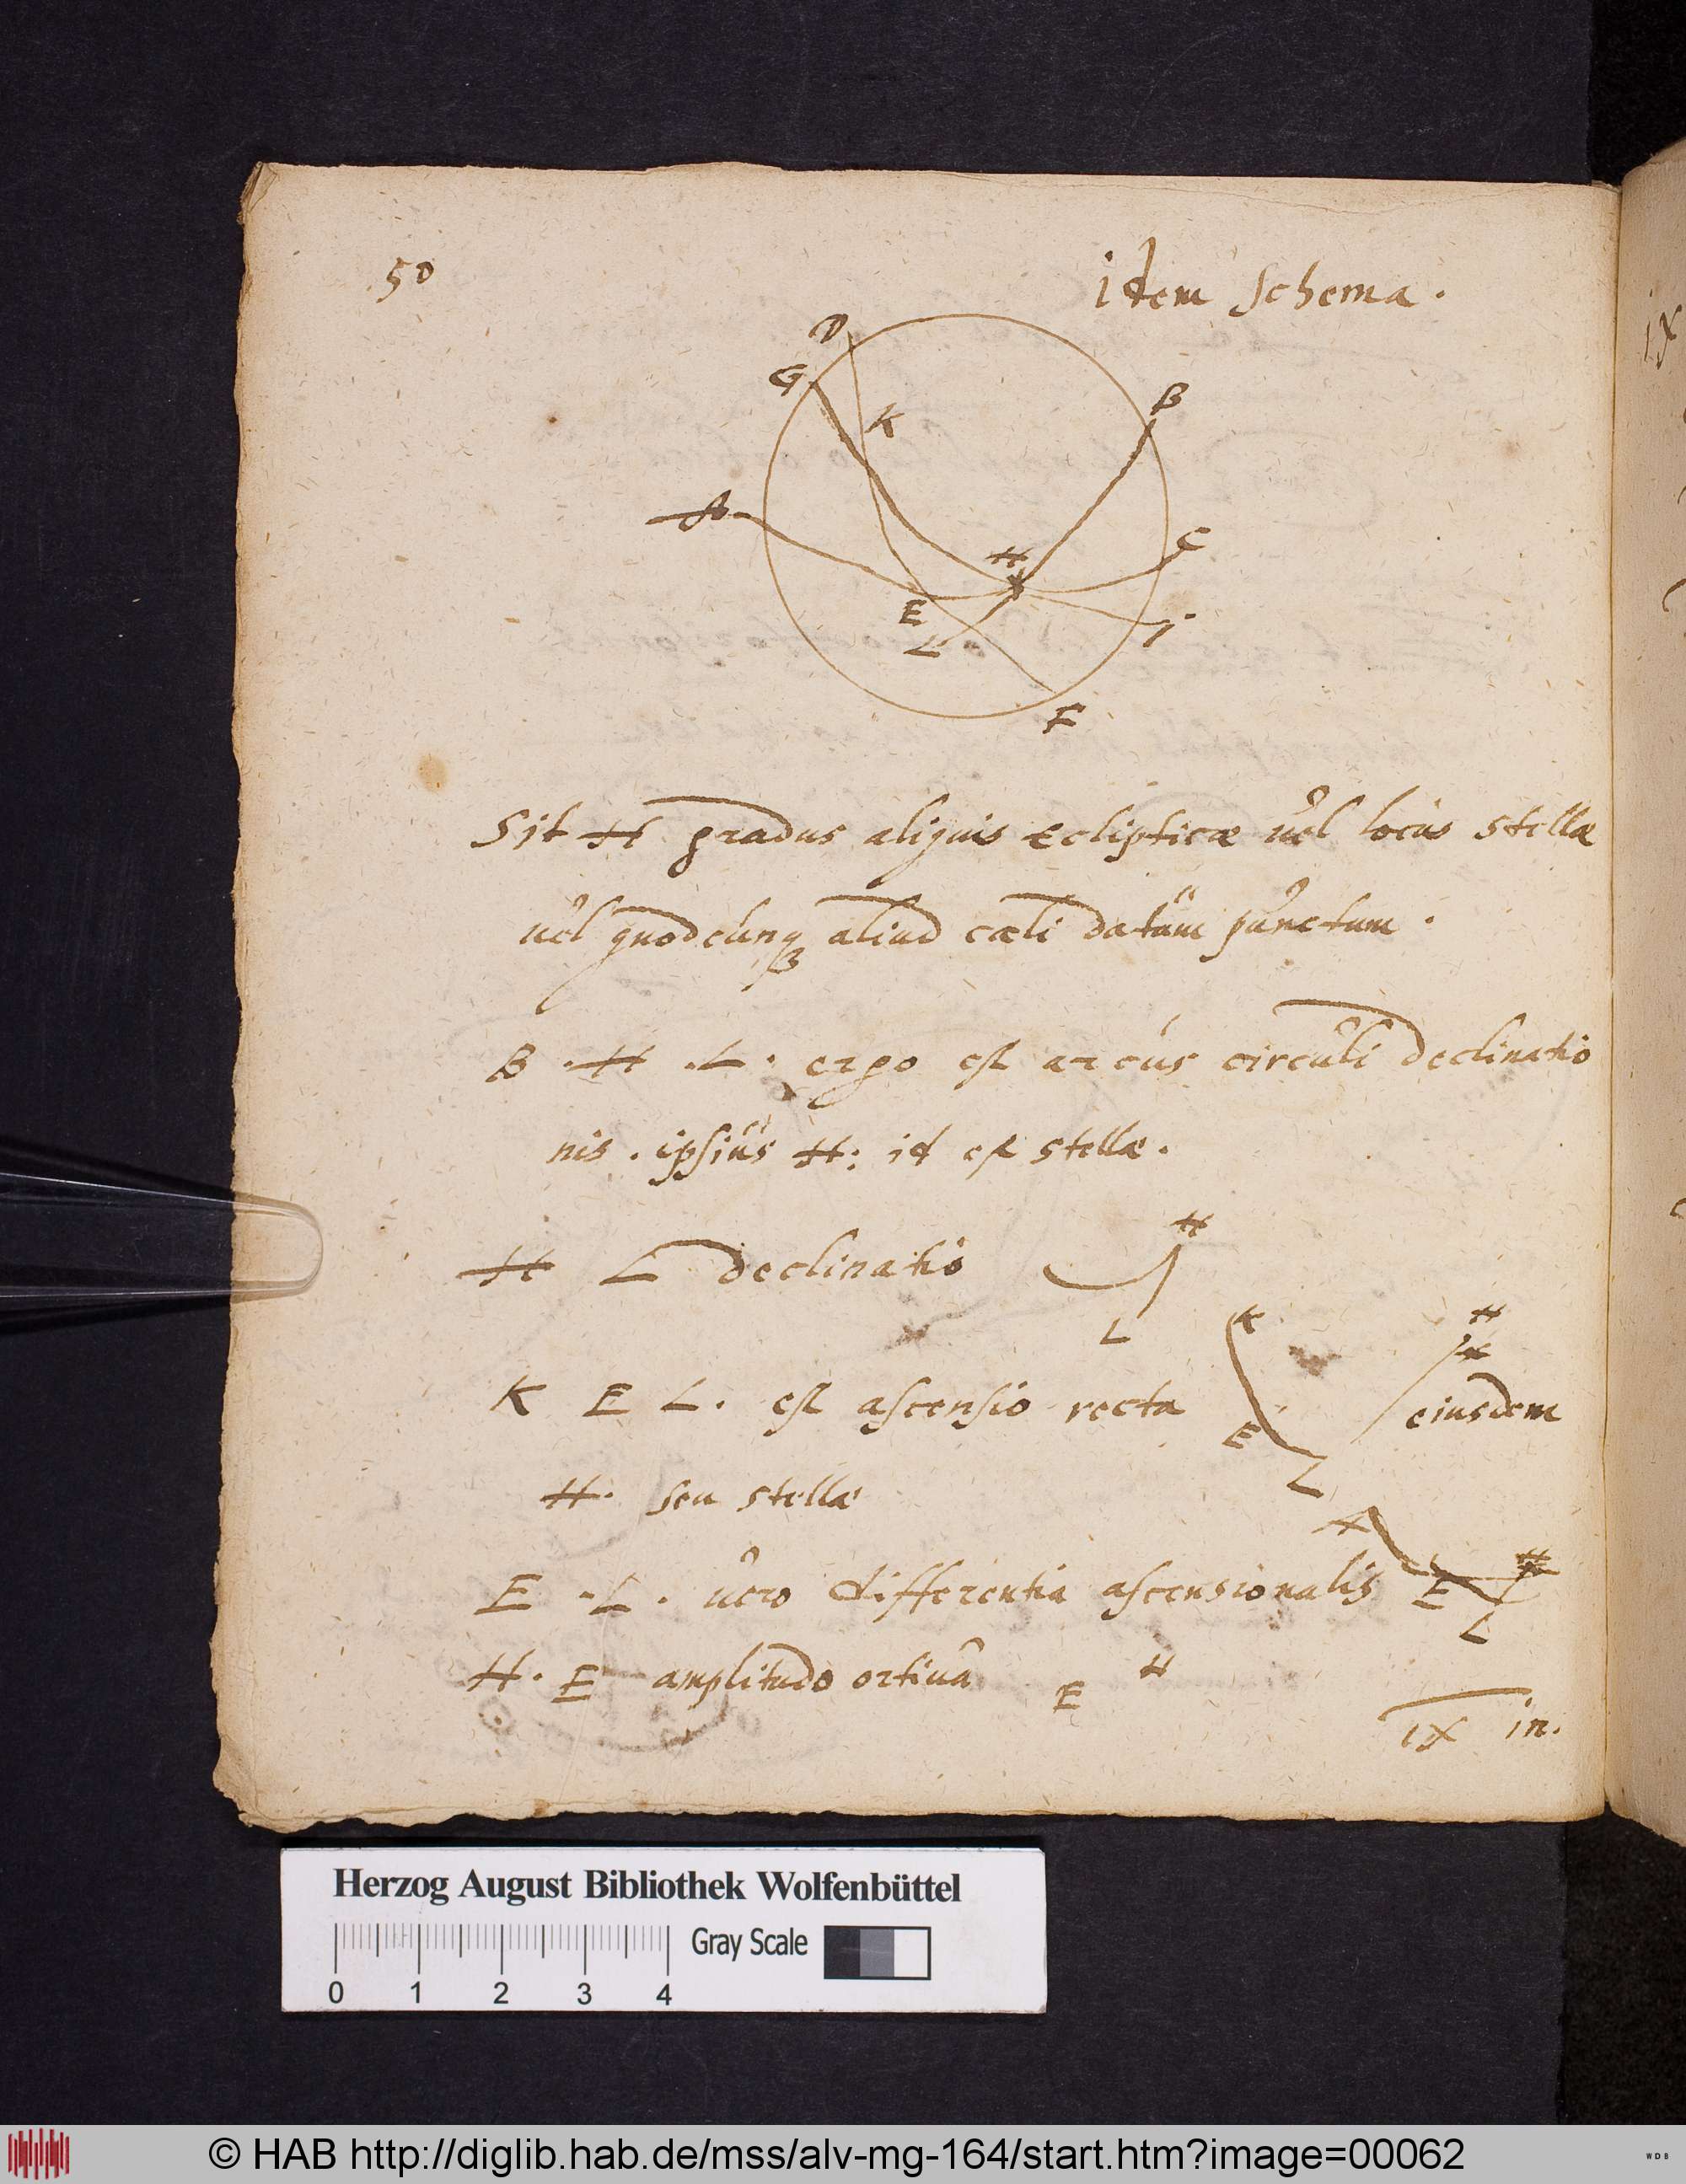 50
idem schema.
D
G
K
B
A
C
H
E
L
I
F
Sit H gradus aliquis eclipticæ vel locus stellæ
vel quodcunq aliud cæli datum punctum.
B
B . H . L . ergo est arcus circuli declinatio
nis . ipsius H : id est stellæ .
H L declinatio
H
L
K E L . est ascensio recta
K
E
L
H
ejusdem
H . seu stellæ
E . L . vero differentia ascensionalis
A
E
H
L
H . E amplitudo ortiva
E
H
IX in.
IX
Herzog August Bibliothek Wolfenbüttel
Gray Scale
0 1 2 3 4
© HAB http://diglib.hab.de/mss/alv-mg-164/start.htm?image=00062
WDB